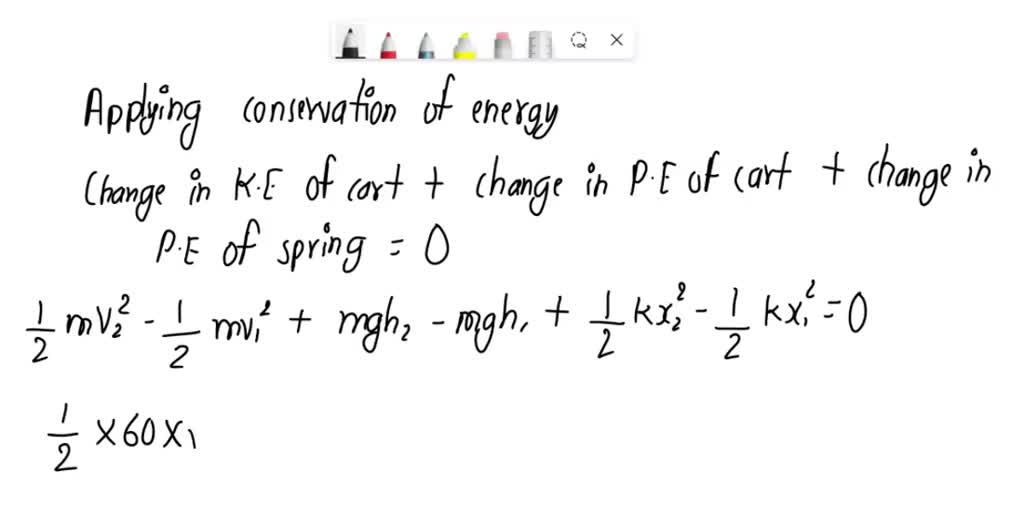 Applying conservation of energy
Change in K.E of cart + change in P.E of cart + change in
P.E of spring = 0
1/2 mv₂² - 1/2 mv₁² + mgh₂ - mgh₁ + 1/2 kx₂² - 1/2 kx₁² = 0
1/2 × 60 ×